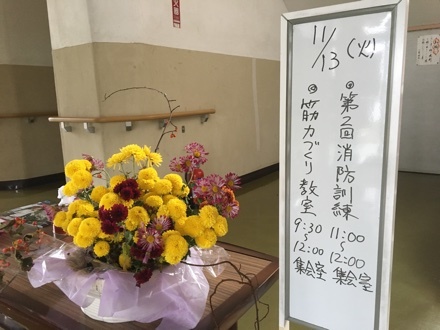 11/13(火)
◎第2回消防訓練 11:00~12:00 集会室
◎筋力づくり教室 9:30~12:00 集会室